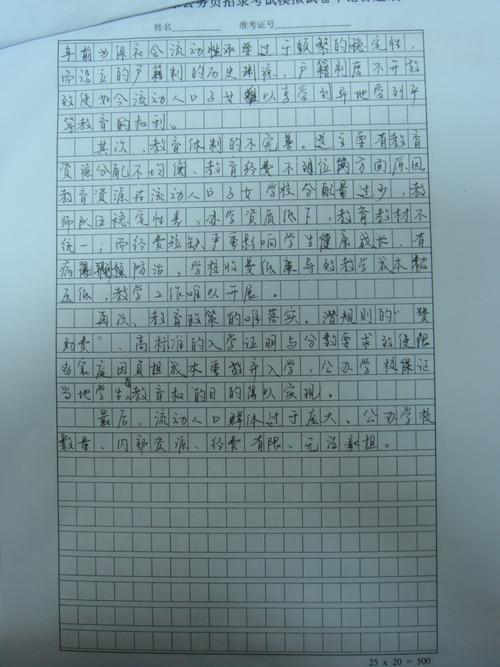 公务员招录考试模拟试卷
姓名 准考证号
年前为保社会流动性不要过于频繁的稳定性,
而设立的户籍制的历史渊源,户籍制度不开放
致使如今流动人口子女难以享受到异地受到平
等教育的权利。
其次,教育体制的不完善。这主要有教育
资源分配不均衡、教育经费不到位两方面原因。
教育资源在流动人口子女学校分配量过少,教
师队伍稳定性差,办学资质低下,教育教材不
统一;而经费短缺严重影响学生健康成长、有
病得不到防治、学校收费低廉导致教学成本被
压低,教学工作难以开展。
再次、教育政策的难落实。潜规则的“赞
助费”、高标准的入学证明与分数要求致使
家庭因负担成本重放弃入学,公办学校保证
当地学生教育权的目的得以实现。
最后,流动人口群体过于庞大、公办学校
数量、内部资源、经费有限、无法承担。
25 x 20 = 500